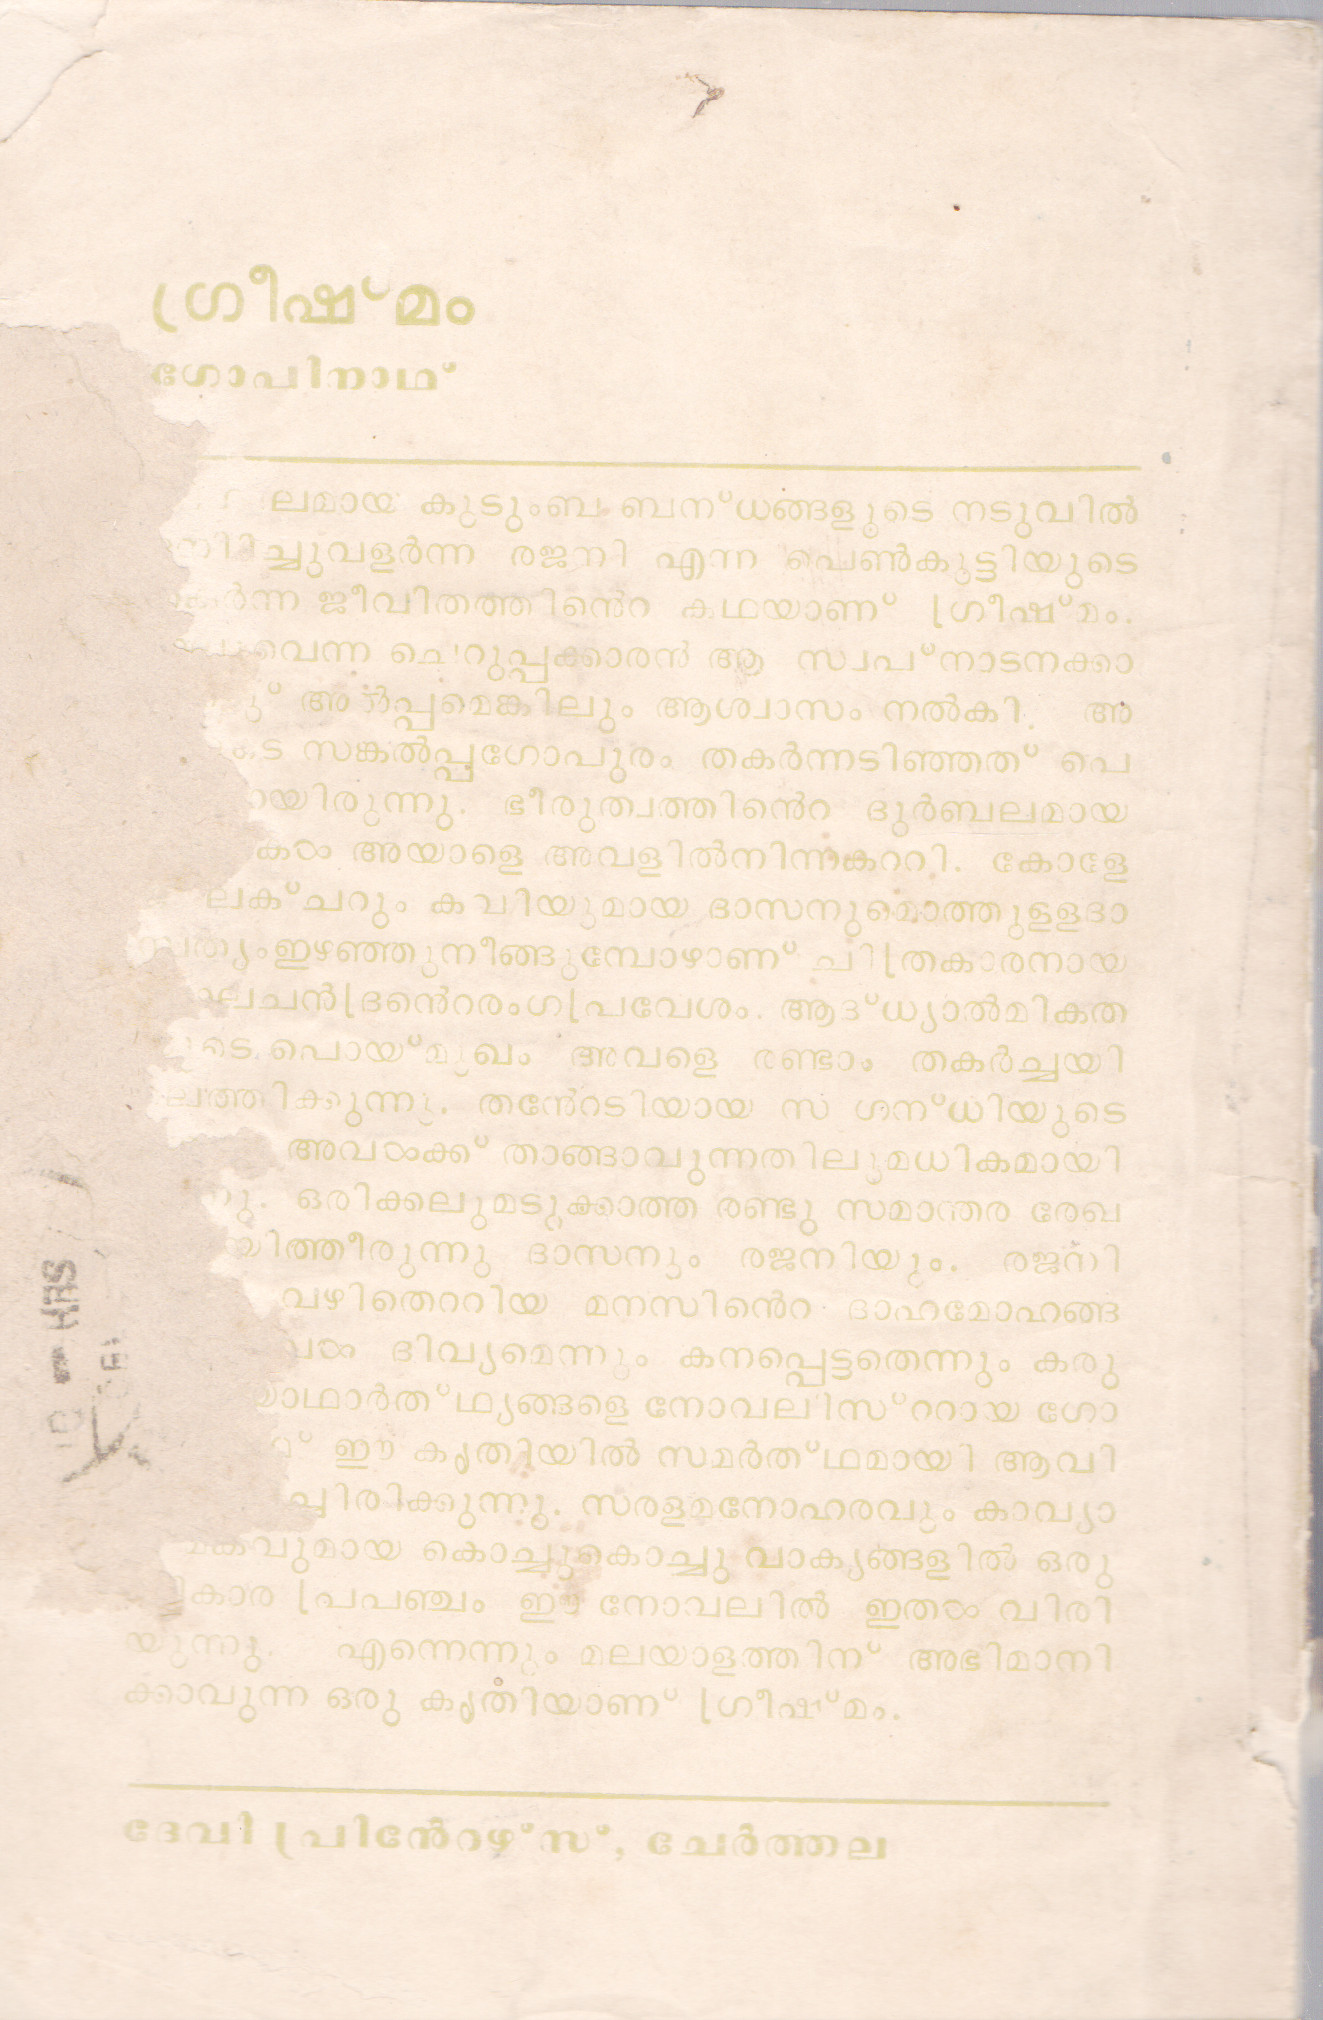 ഗ്രീഷ്മം
ഗോപിനാഥ്
കുടുംബ ബന്ധങ്ങളുടെ നടുവിൽ
രജനി എന്ന പെൺകുട്ടിയുടെ
ജീവിതത്തിൻെറ കഥയാണ് ഗ്രീഷ്മം.
ചെറുപ്പക്കാരൻ ആ സ്വപ്നാടനക്കാ
അൽപ്പമെങ്കിലും ആശ്വാസം നൽകി. അ
സങ്കൽപ്പഗോപുരം തകർന്നടിഞ്ഞത് പെ
ഭീരുത്വത്തിൻെറ ദുർബലമായ
അയാളെ അവളിൽനിന്നകററി. കോളേ
ലക്ചറും കവിയുമായ ദാസനുമൊത്തുള്ളദാ
ഇഴഞ്ഞുനീങ്ങുമ്പോഴാണ് ചിത്രകാരനായ
രംഗപ്രവേശം. ആദ്ധ്യാൽമികത
പൊയ്മുഖം അവളെ രണ്ടാം തകർച്ചയി
തൻേറടിയായ സുഗന്ധിയുടെ
അവൾക്ക് താങ്ങാവുന്നതിലുമധികമായി
ഒരിക്കലുമടുക്കാത്ത രണ്ടു സമാന്തര രേഖ
ദാസനും രജനിയും. രജനി
വഴിതെററിയ മനസിൻെറ ദാഹമോഹങ്ങ
ദിവ്യമെന്നും കനപ്പെട്ടതെന്നും കരു
യാഥാർത്ഥ്യങ്ങളെ നോവലിസ്ററായ ഗോ
ഈ കൃതിയിൽ സമർത്ഥമായി ആവി
സരളമനോഹരവും കാവ്യാ
കൊച്ചുകൊച്ചു വാക്യങ്ങളിൽ ഒരു
പ്രപഞ്ചം ഈ നോവലിൽ ഇതൾ വിരി
യുന്നു. എന്നെന്നും മലയാളത്തിന് അഭിമാനി
ക്കാവുന്ന ഒരു കൃതിയാണ് ഗ്രീഷ്മം.
ദേവി പ്രിൻേറഴ്സ്, ചേർത്തല